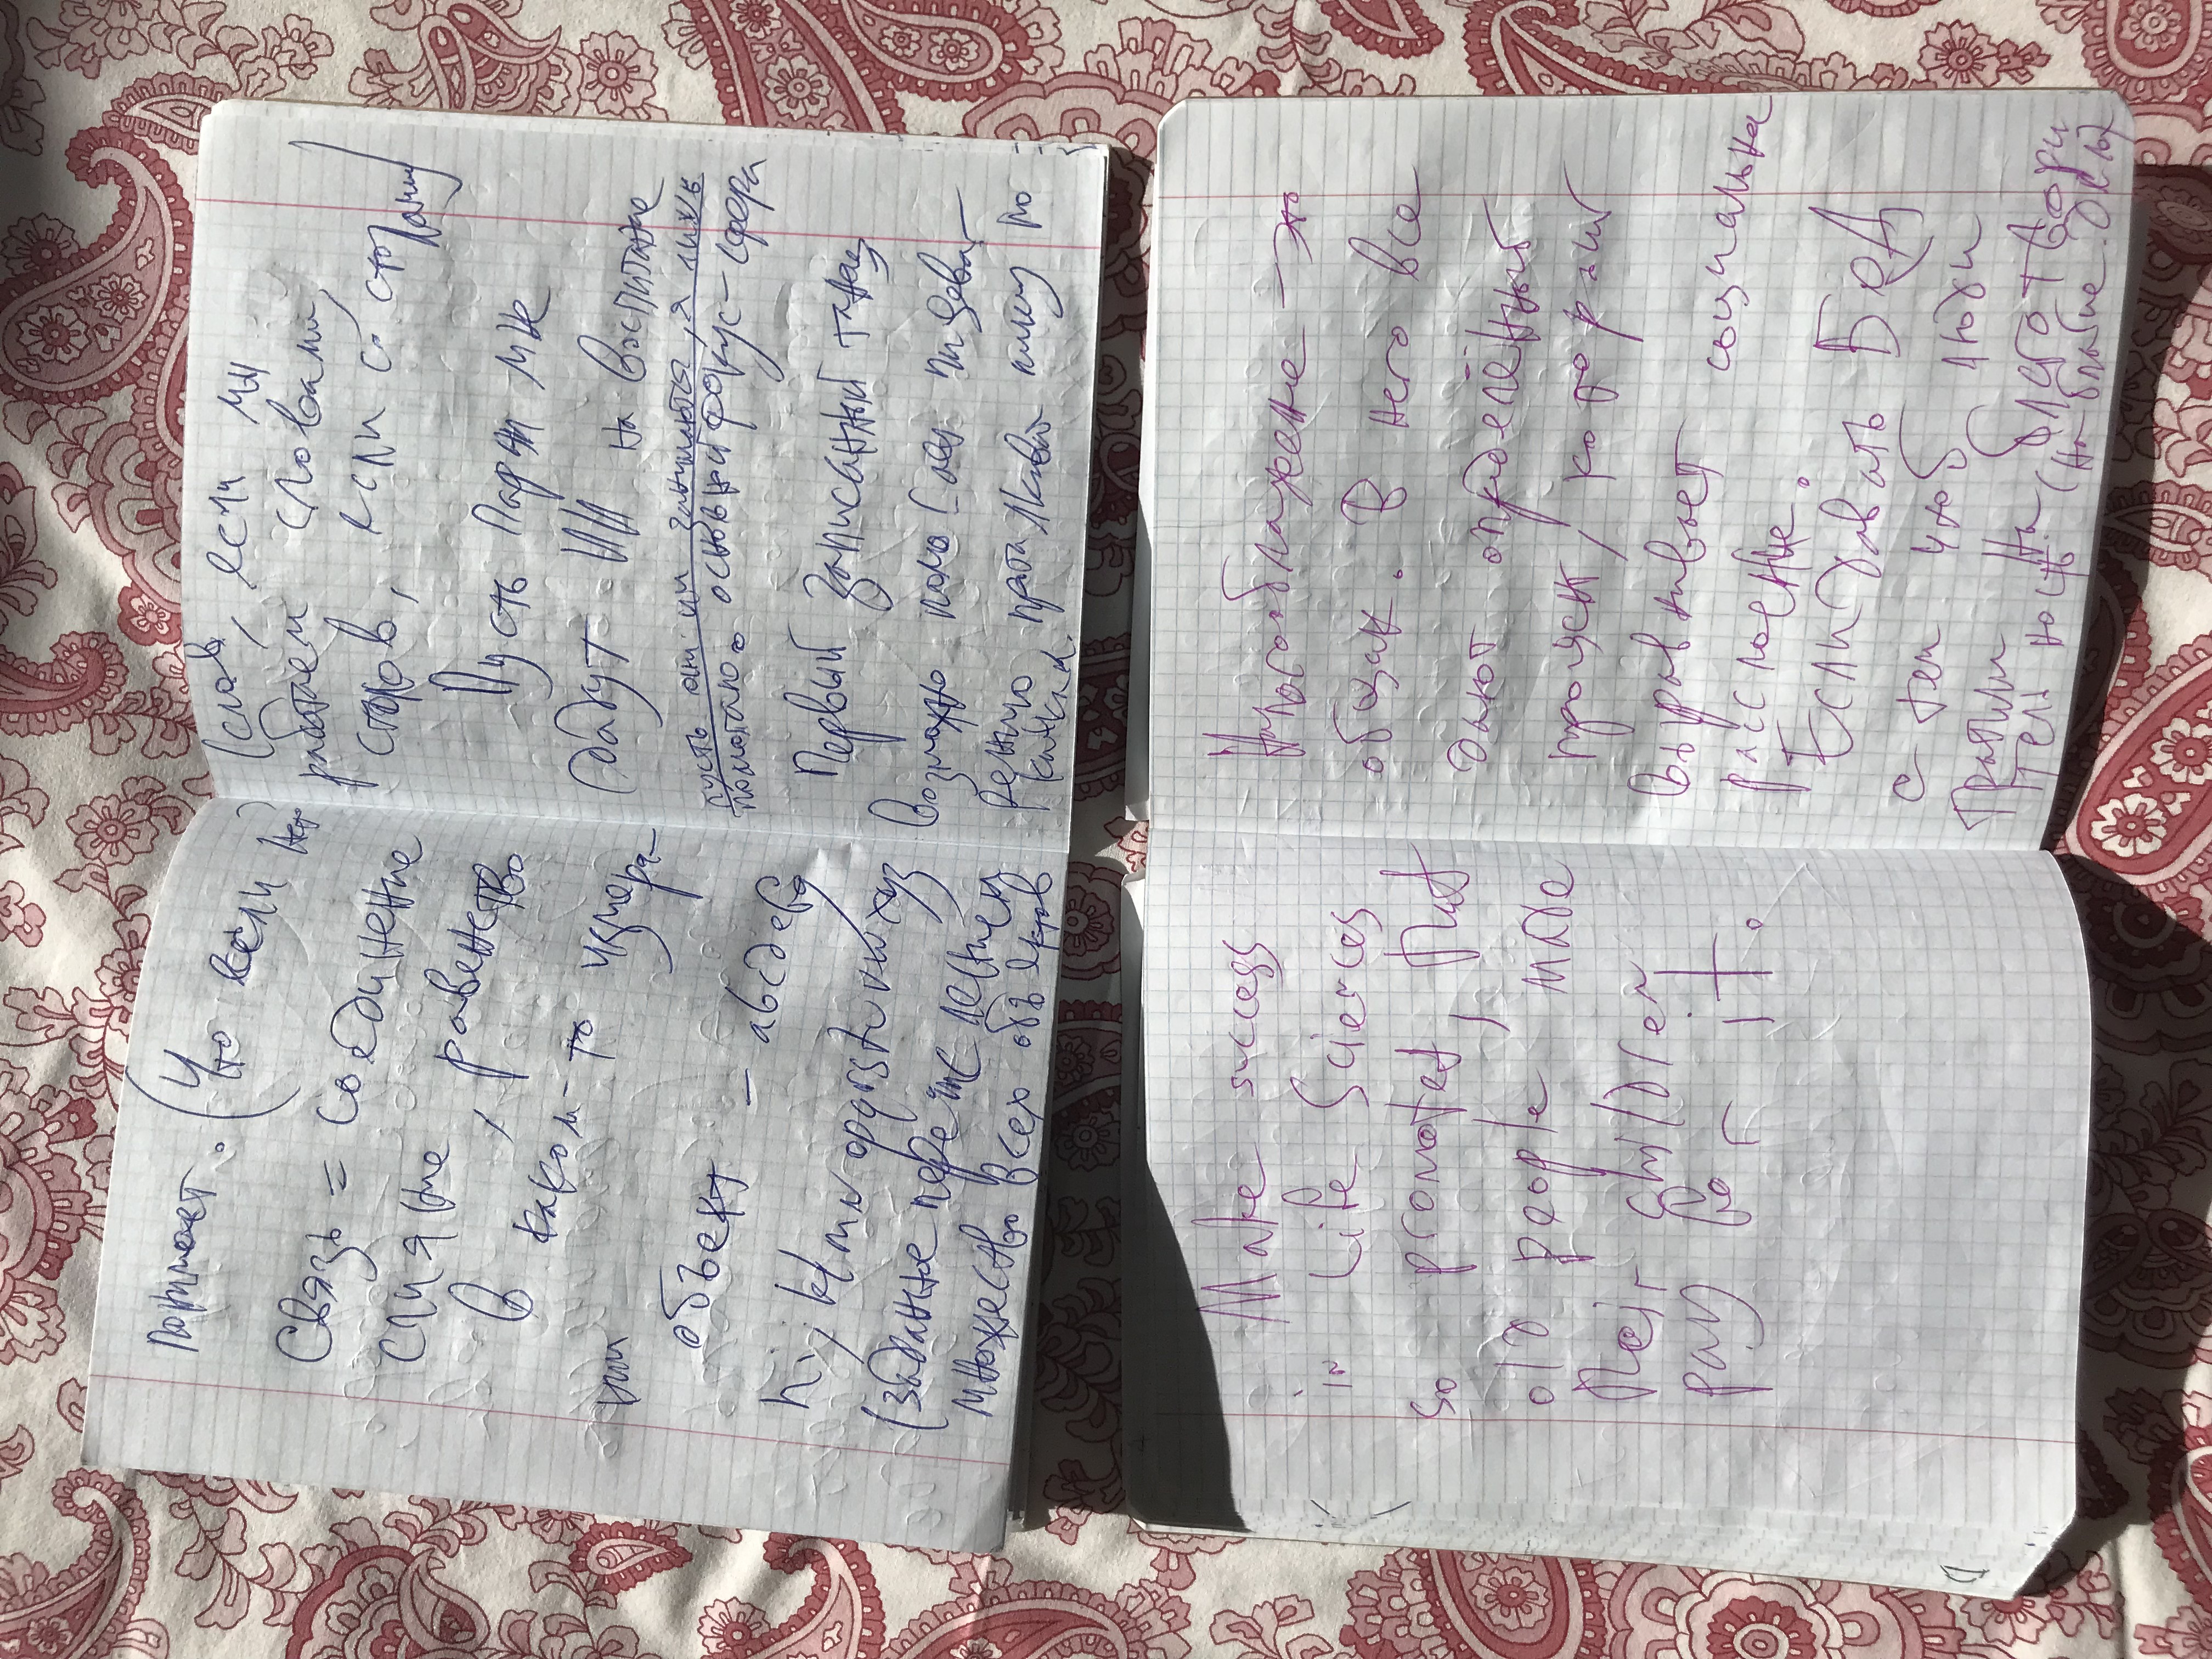 понимает. (Что если нет)
Связь = соединение
слияние, равенство
в каком-то измере-
нии
объект - abcdefg
hijklmnopqrstuvwxyz
(заданное перечислением
множество всех объектов
(слов, если мы
работаем словами,
столов, если со столами)
Пусть Парни мне
дадут ИИ на воспитание
пусть они им занимаются, я лишь
помогаю. основной фокус - сфера
Первый записанный танец
возможно помогает пищева-
рению проталкивая пищу по
Make success
in Life Sciences
so promoted, that
old people made
their children
pay for it.
Налогообложение - это
общак. В него все
дают определённый
процент, который
выравнивает социальное
расслоение.
Если давать БеД
с тем чтоб люди
тратили на благотвори
тельность (на благие дела)